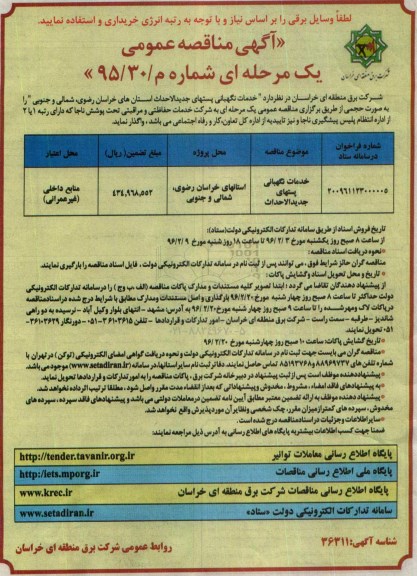 لطفاً وسایل برقی را بر اساس نیاز و با توجه به رتبه انرژی خریداری و استفاده نمایید.
«آگهی مناقصه عمومی
یک مرحله ای شماره م/۹۵/۳۰»
شرکت برق منطقه ای خراسان
شرکت برق منطقه ای خراسان در نظر دارد "خدمات نگهبانی پستهای جدیدالاحداث استان های خراسان رضوی، شمالی و جنوبی" را
به صورت حجمی از طریق برگزاری مناقصه عمومی یک مرحله ای به شرکت خدمات حفاظتی و مراقبتی تحت پوشش ناجا که دارای رتبه ۱ یا ۲
از اداره انتظام پلیس پیشگیری ناجا و نیز تاییدیه از اداره کل تعاون، کار و رفاه اجتماعی می باشد، واگذار نماید.
شماره فراخوان در سامانه ستاد
موضوع مناقصه
محل پروژه
مبلغ تضمین (ریال)
محل اعتبار
۲۰۰۹۶۱۱۲۳۰۰۰۰۰۵
خدمات نگهبانی پستهای جدیدالاحداث
استانهای خراسان رضوی، شمالی و جنوبی
۴۳۴,۹۶۸,۵۵۲
منابع داخلی (غیرعمرانی)
تاریخ فروش اسناد از طریق سامانه تدارکات الکترونیکی دولت (ستاد):
از ساعت ۸ صبح روز یکشنبه مورخ ۹۶/۲/۳ تا ساعت ۱۸ روز شنبه مورخ ۹۶/۲/۹
-نحوه دریافت اسناد مناقصه:
مناقصه گران حائز شرایط فوق، می توانند پس از ثبت نام در سامانه تدارکات الکترونیکی دولت، فایل اسناد مناقصه را بارگیری نمایند.
• تاریخ و محل تحویل اسناد و گشایش پاکات:
از پیشنهاد دهندگان تقاضا می گردد: ابتدا تصویر کلیه مستندات و مدارک پاکات مناقصه (الف، ب و ج) را در سامانه تدارکات الکترونیکی
دولت حداکثر تا ساعت ۸ صبح روز چهار شنبه مورخ ۹۶/۲/۲۰ بارگذاری و اصل مستندات ومدارک مطابق با شرایط درج شده در اسناد مناقصه
در پاکات لاک ومهر شده را تا ساعت ۹ صبح روز چهار شنبه مورخ ۹۶/۲/۲۰ به آدرس: مشهد - انتهای بلوار وکیل آباد - نرسیده به دو راهی
شاندیز - طرقبه - سمت راست - شرکت برق منطقه ای خراسان - امور تدارکات و قراردادها - تلفن ۳۶۱۰۳۶۱۵-۰۵۱ - دورنگار ۳۶۱۰۳۶۲۹-
۰۵۱ تحویل نمایند.
• تاریخ گشایش پاکات: ساعت ۱۰ صبح روز چهارشنبه مورخ ۹۶/۲/۲۰
• مناقصه گران می بایست جهت ثبت نام در سامانه تدارکات الکترونیکی دولت و نحوه دریافت گواهی امضای الکترونیکی (توکن) در تهران با
شماره تلفن های ۸۸۹۶۹۷۳۷ و ۸۵۱۹۳۷۶۸ تماس حاصل نمایند. دفاتر ثبت نام سایر استانها، در سامانه (www.setadiran.ir) موجود می باشد.
• پیشنهاد دهنده موظف است پس از ثبت پیشنهاد در دبیرخانه شرکت برق، پاکات مناقصه را به امور تدارکات و قراردادها تحویل نمایند.
• به پیشنهادهای فاقد امضاء، مشروط، مخدوش و پیشنهاداتی که بعد از انقضاء مدت مقرر واصل شود، مطلقا ترتیب اثر داده نخواهد شد.
• پیشنهاد دهنده موظف به ارائه تضمین معتبر مطابق آیین نامه تضمین در معاملات دولتی می باشد و پیشنهادهای فاقد سپرده، سپرده های
مخدوش، سپرده های کمتر از میزان مقرر، چک شخصی و نظایر آن مورد پذیرش واقع نخواهد شد.
• سایر اطلاعات وجزئیات در اسناد مناقصه درج شده است.
ضمنا جهت کسب اطلاعات بیشتر به پایگاه های اطلاع رسانی به آدرس ذیل مراجعه نمایند:
پایگاه اطلاع رسانی معاملات توانیر http://tender.tavanir.org.ir
پایگاه ملی اطلاع رسانی مناقصات http:/iets.mporg.ir
پایگاه اطلاع رسانی مناقصات شرکت برق منطقه ای خراسان www.krec.ir
سامانه تدارکات الکترونیکی دولت «ستاد» www.setadiran.ir
شناسه آگهی: ۳۶۳۱۱
روابط عمومی شرکت برق منطقه ای خراسان